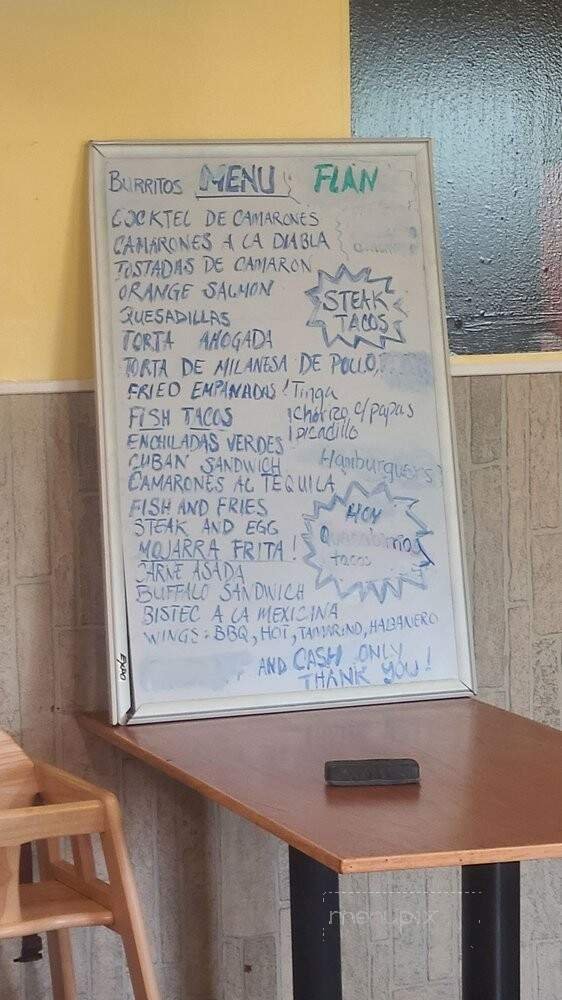 BURRITOS MENU FLAN
COCKTEL DE CAMARONES
CAMARONES A LA DIABLA
TOSTADAS DE CAMARON
ORANGE SALMON
STEAK
TACOS
QUESADILLAS
TORTA AHOGADA
TORTA DE MILANESA DE POLLO,
FRIED EMPANADAS! Tinga
FISH TACOS ! Chorizo c/papas
! picadillo
ENCHILADAS VERDES
CUBAN SANDWICH Hamburguers
CAMARONES AL TEQUILA
FISH AND FRIES
HOY
tacos
STEAK AND EGG
MOJARRA FRITA!
CARNE ASADA
BUFFALO SANDWICH
BISTEC A LA MEXICINA
WINGS: BBQ, HOT, TAMARIND, HABANERO
AND CASH ONLY
THANK YOU!
EXPO
menupix